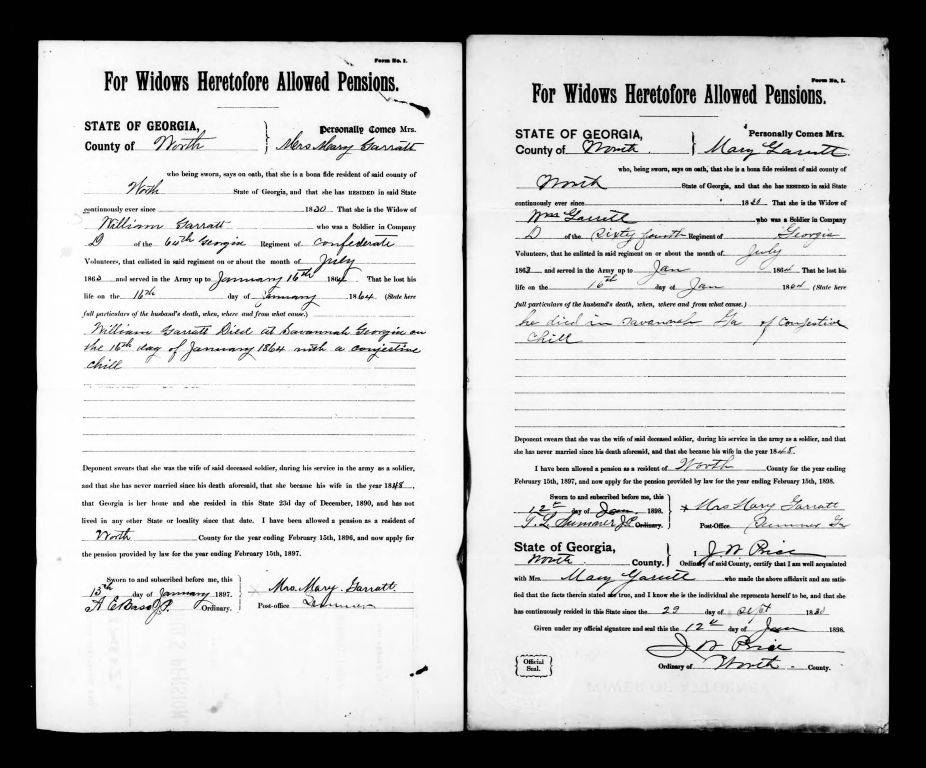 Form No. 1.
For Widows Heretofore Allowed Pensions.
STATE OF GEORGIA,
County of Worth
Personally Comes Mrs.
Mrs Mary Garratt
who being sworn, says on oath, that she is a bona fide resident of said county of
Worth State of Georgia, and that she has RESIDED in said State
continuously ever since 1830 That she is the Widow of
William Garratt who was a Soldier in Company
D of the 64th Georgia Regiment of Confederate
Volunteers, that enlisted in said regiment on or about the month of July
1863 and served in the Army up to January 16th 1864. That he lost his
life on the 16th day of January 1864 (State here
full particulars of the husband's death, when, where and from what cause.)
William Garratt Died at Savannah Georgia on
the 16th day of January 1864 with a conjestive
chill
Deponent swears that she was the wife of said deceased soldier, during his service in the army as a soldier,
and that she has never married since his death aforesaid, that she became his wife in the year 1848,
that Georgia is her home and she resided in this State 23d day of December, 1890, and has not
lived in any other State or locality since that date. I have been allowed a pension as a resident of
Worth County for the year ending February 15th, 1896, and now apply for
the pension provided by law for the year ending February 15th, 1897.
Sworn to and subscribed before me, this
13th day of January 1897.
A E Bass J.P. Ordinary.
Mrs. Mary Garratt
Post-office
Form No. 1.
For Widows Heretofore Allowed Pensions.
STATE OF GEORGIA,
County of Worth
Personally Comes Mrs.
Mary Garrett
who, being sworn, says on oath, that she is a bona fide resident of said county of
Worth State of Georgia, and that she has RESIDED in said State
continuously ever since 1830 That she is the Widow of
Wm Garrett who was a Soldier in Company
D of the Sixty fourth Regiment of Georgia
Volunteers, that he enlisted in said regiment on or about the month of July
1863 and served in the Army up to Jan 1864 That he lost his
life on the 16th day of Jan 1864 (State here
full particulars of the husband's death, when, where and from what cause.)
he died in Savannah Ga of Conjestive
Chill
Deponent swears that she was the wife of said deceased soldier, during his service in the army as a soldier, and that
she has never married since his death aforesaid, and that she became his wife in the year 1848.
I have been allowed a pension as a resident of Worth County for the year ending
February 15th, 1897, and now apply for the pension provided by law for the year ending February 15th, 1898.
Sworn to and subscribed before me, this
12th day of Jan 1898.
T. L. Sumner J.P. Ordinary.
x Mrs Mary Garratt
Post-Office. Sumner Ga
State of Georgia,
Worth County.
I J. W. Price
Ordinary of said County, certify that I am well acquainted
with Mrs. Mary Garrett who made the above affidavit and am satis-
fied that the facts therein stated are true, and I know she is the individual she represents herself to be, and that she
has continuously resided in this State since the 29 day of Sept 1830
Given under my official signature and seal this the 12th day of Jan 1898.
J W Price
Official
Seal.
Ordinary of Worth County.